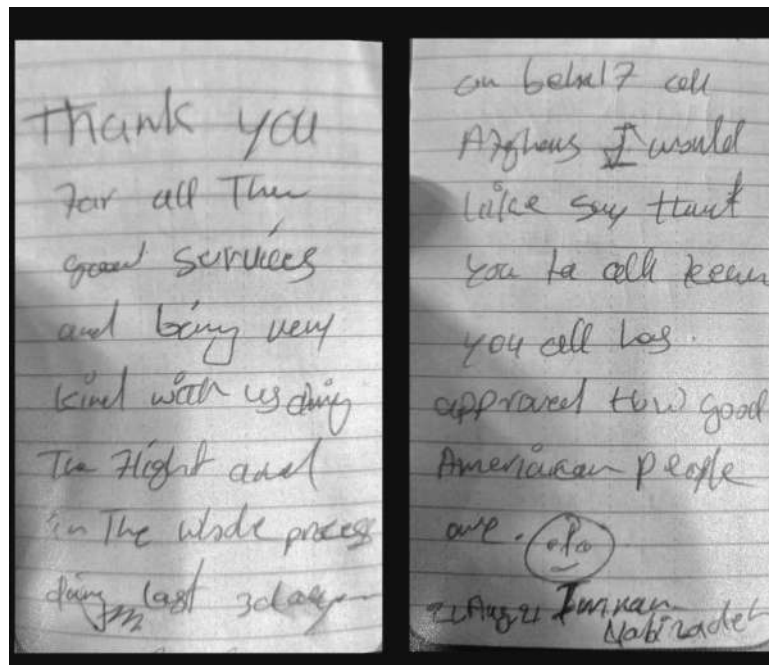 Thank you
for all The
good services
and being very
kind with us during
The flight and
in The whole process
last 3 days
on behalf all
Afghans I would
like say thank
you to all team
you all has
approved how good
American people
are.
22 Aug 21
Nabizadeh